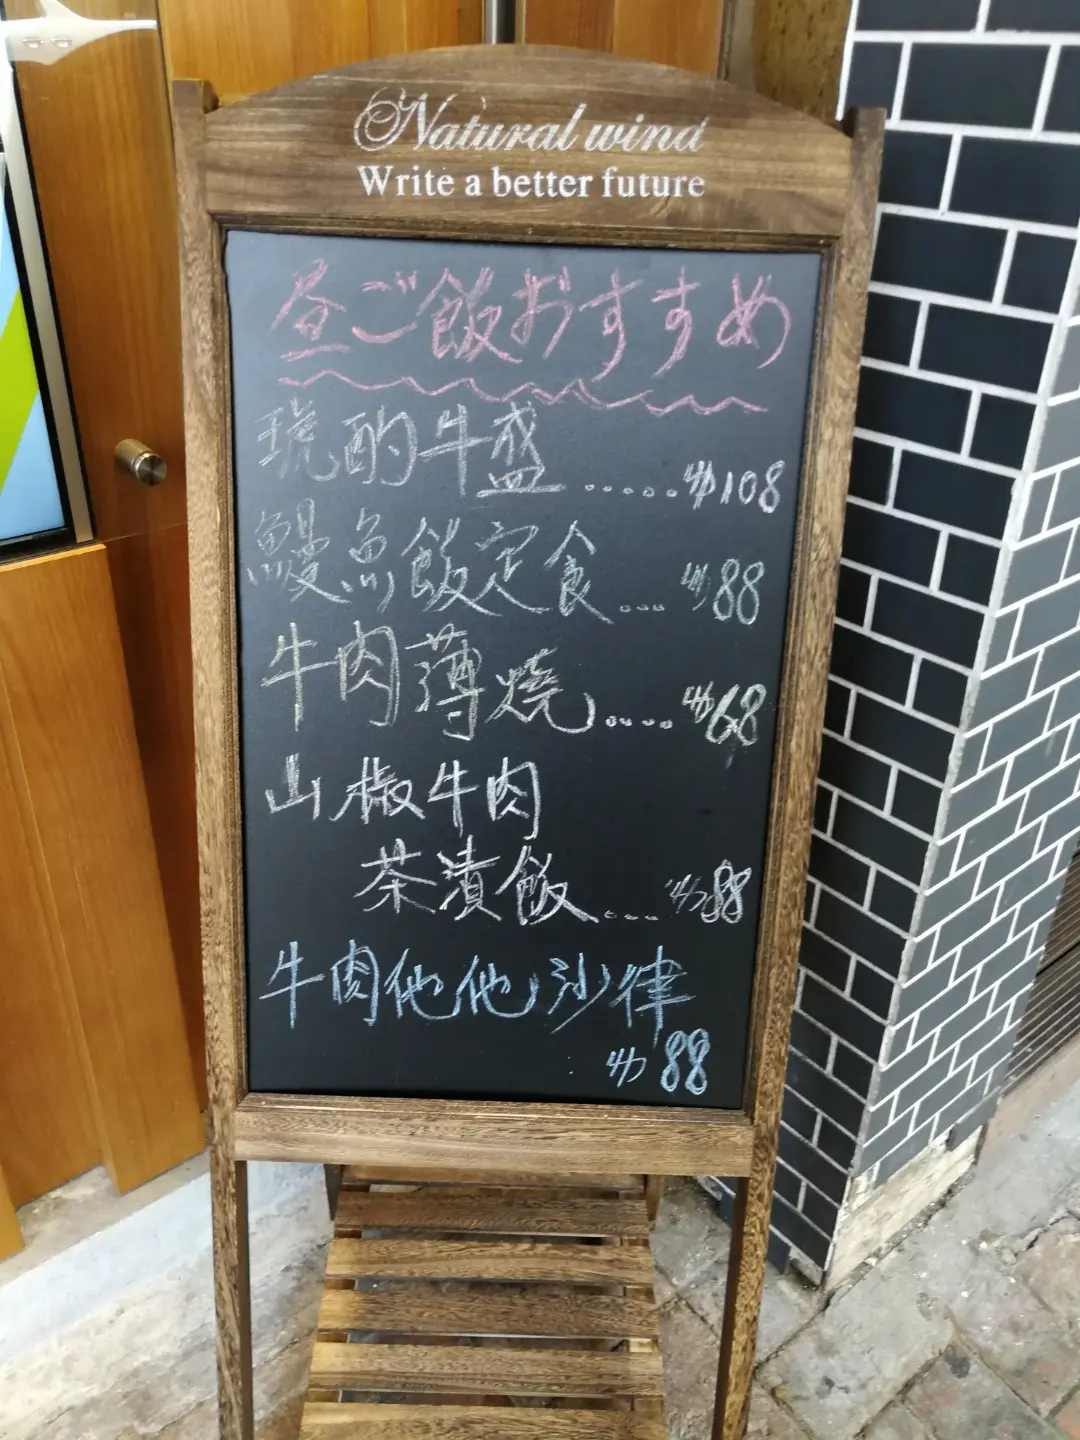 Natural wind
Write a better future
昼ご飯おすすめ
琥酌牛盛.....$108
鰻魚飯定食....$88
牛肉薄燒....$68
山椒牛肉
茶漬飯....$88
牛肉他他沙律
$88